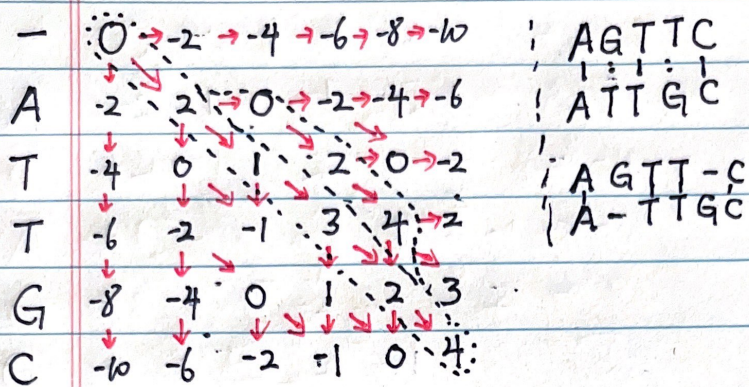 - 0 → -2 → -4 → -6 → -8 → -10
A -2 2 → 0 → -2 → -4 → -6
T -4 0 1 2 → 0 → -2
T -6 -2 -1 3 4 → 2
G -8 -4 0 1 2 3
C -10 -6 -2 -1 0 4
AGTTC
ATTGC
AGTT-C
A-TTGC